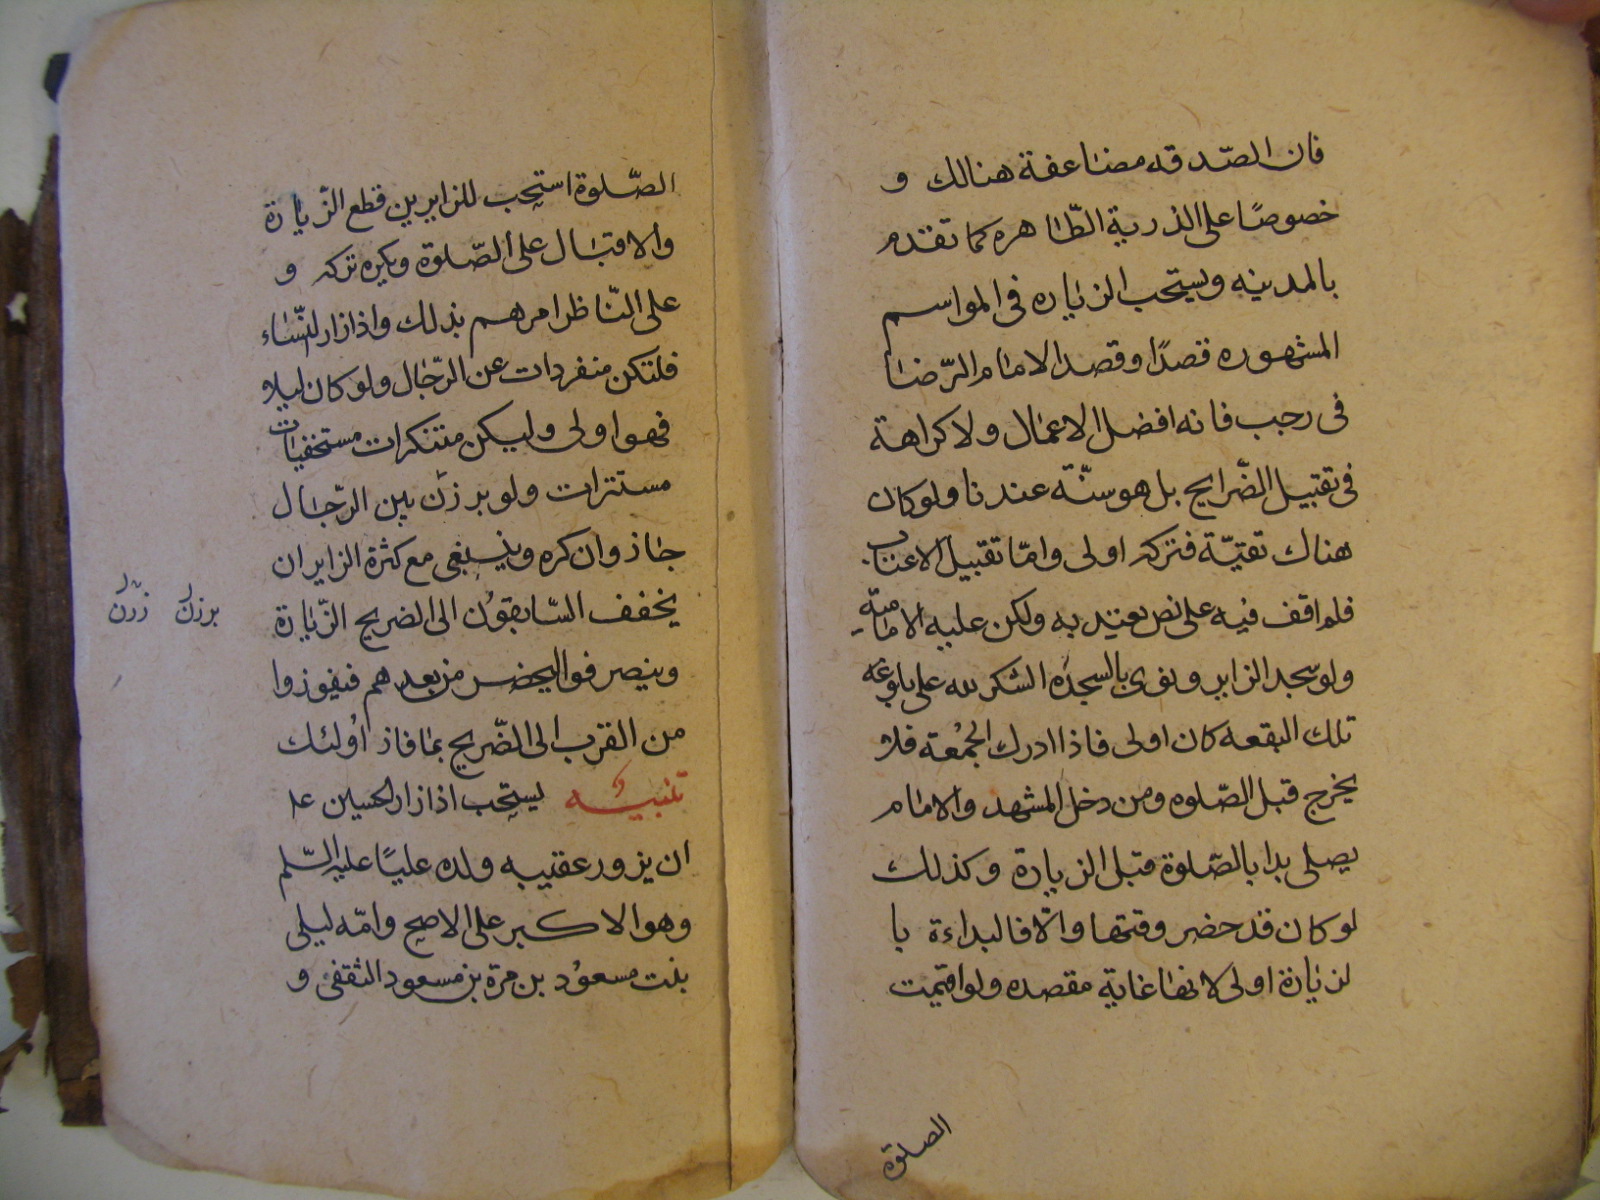 فان الصّدقه مضاعفة هنالك و
خصوصًا على الذرية الطّاهره كما تقدم
بالمدينه ويستحب الزياره فى المواسم
المشهوره قصدًا وقصد الامام الرّضا
فى رجب فانه افضل الاعمال ولا كراهة
فى تقبيل الضّرايح بل هو سنّة عندنا ولو كان
هناك تقيّة فتركه اولى وامّا تقبيل الاعتاب
فلم اقف فيه على نص نعتد به ولكن عليه الامامية
ولو سجد الزاير ونوى بالسجده الشكر لله على بلوغه
تلك البقعه كان اولى فاذا ادرك الجمُعة فلا
يخرج قبل الصّلوه ومن دخل المشهد والامام
يصلى بدا بالصّلوة قبل الزيارة وكذلك
لو كان قد حضر وقتها والّا فالبداءة با
لزيارة اولى لانها غاية مقصده ولو اقيمت
الصلوة
الصّلوة استحب للزايرين قطع الزّيارة
والاقبال على الصّلوة ويكره تركه و
على النّاظر امرهم بذلك واذا زار النّساء
فلتكن منفردات عن الرّجال ولو كان ليلا
فهو اولى وليكن متنكرات مستخفيات
مستترات ولو برزن بين الرّجال
جاز وان كره وينبغى مع كثرة الزايران
يخفف السّابقوُن الى الضريح الزّيارة
وينصرفوا ليحضر من بعدهم فيفوزوا
من القرب الى الضّريح بما فاز اوُلئك
تنبيه يستحب اذا زار الحسين عل
ان يزور عقيبه ولده عليًا عليه السّلم
وهو الاكبر على الاصح وامّه ليلى
بنت مسعوُد بن مرة بن مسعود الثقفى و
برزن زرن